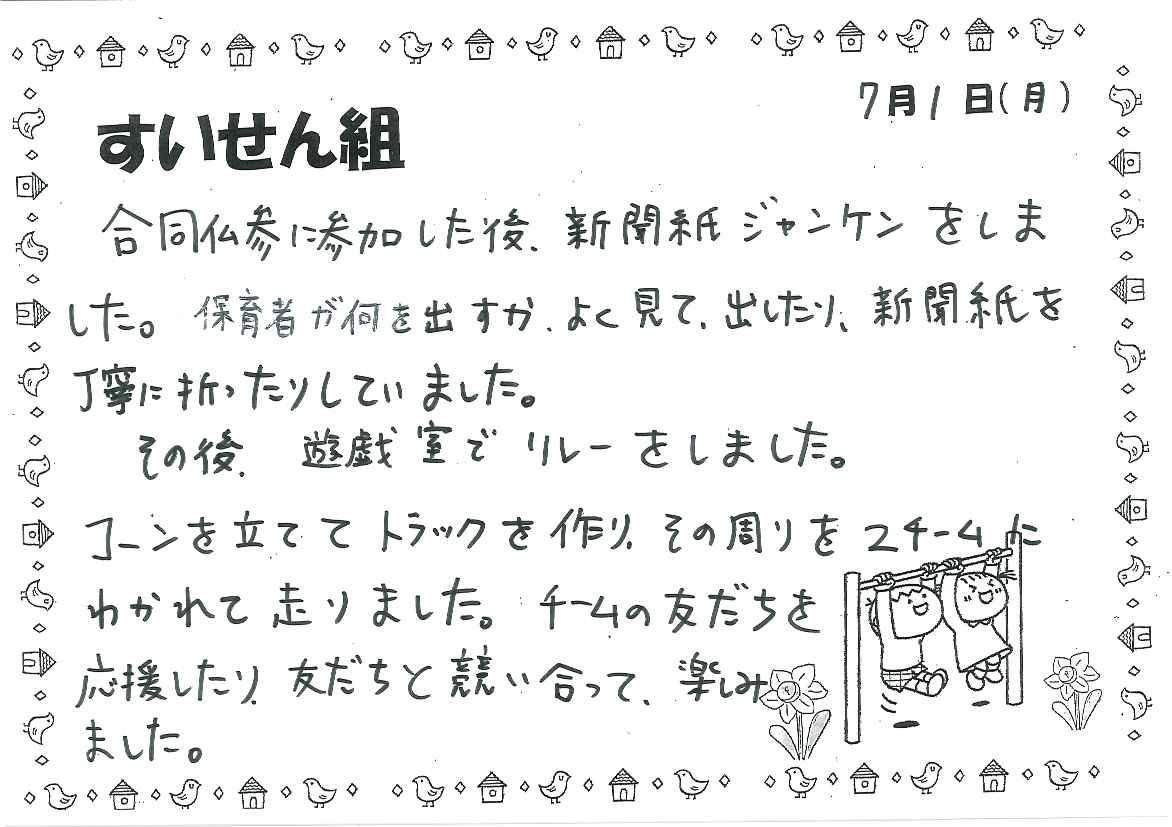 7月1日(月)
すいせん組
合同仏参に参加した後、新聞紙ジャンケンをしま
した。保育者が何を出すか、よく見て、出したり、新聞紙を
丁寧に折ったりしていました。
その後、遊戯室でリレーをしました。
コーンを立ててトラックを作り、その周りを2チームに
わかれて走りました。チームの友だちを
応援したり、友だちと競い合って、楽しみ
ました。